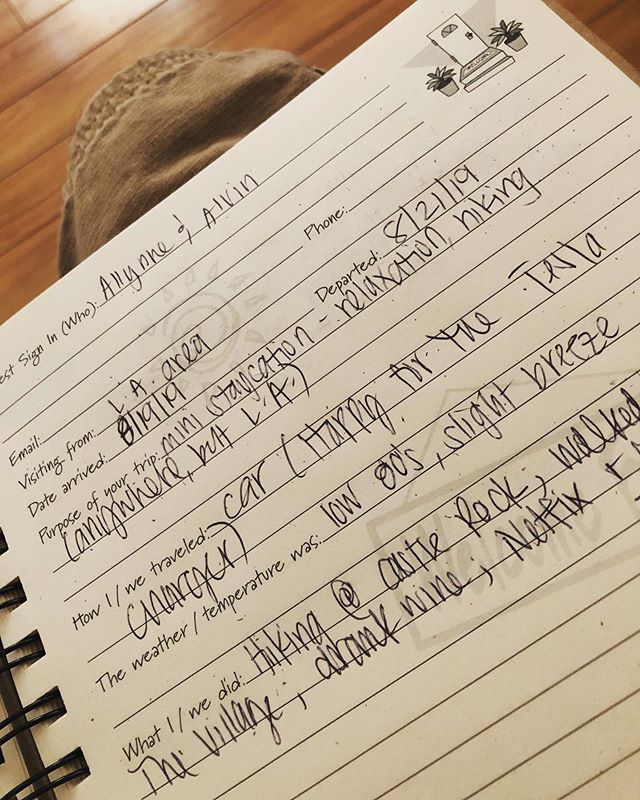 WELCOME
est Sign In (Who): Allynne & Alvin
Phone:
Email:
Visiting from: L.A. area
Date arrived: 8/19/19
Departed: 8/21/19
Purpose of your trip: mini staycation - relaxation, hiking
(anywhere, but L.A.)
How I/we traveled: car (Hurray for the Tesla
charger)
The weather/temperature was: low 80's, slight breeze
What I/we did: Hiking @ Castle Rock, walked
The Village, drank wine, Netflix +
Welcome